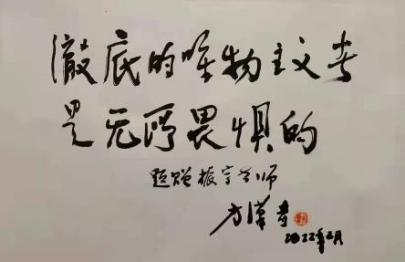 澈底的唯物主义者
是无所畏惧的
题赠振宇老师
方汉奇
2022年2月